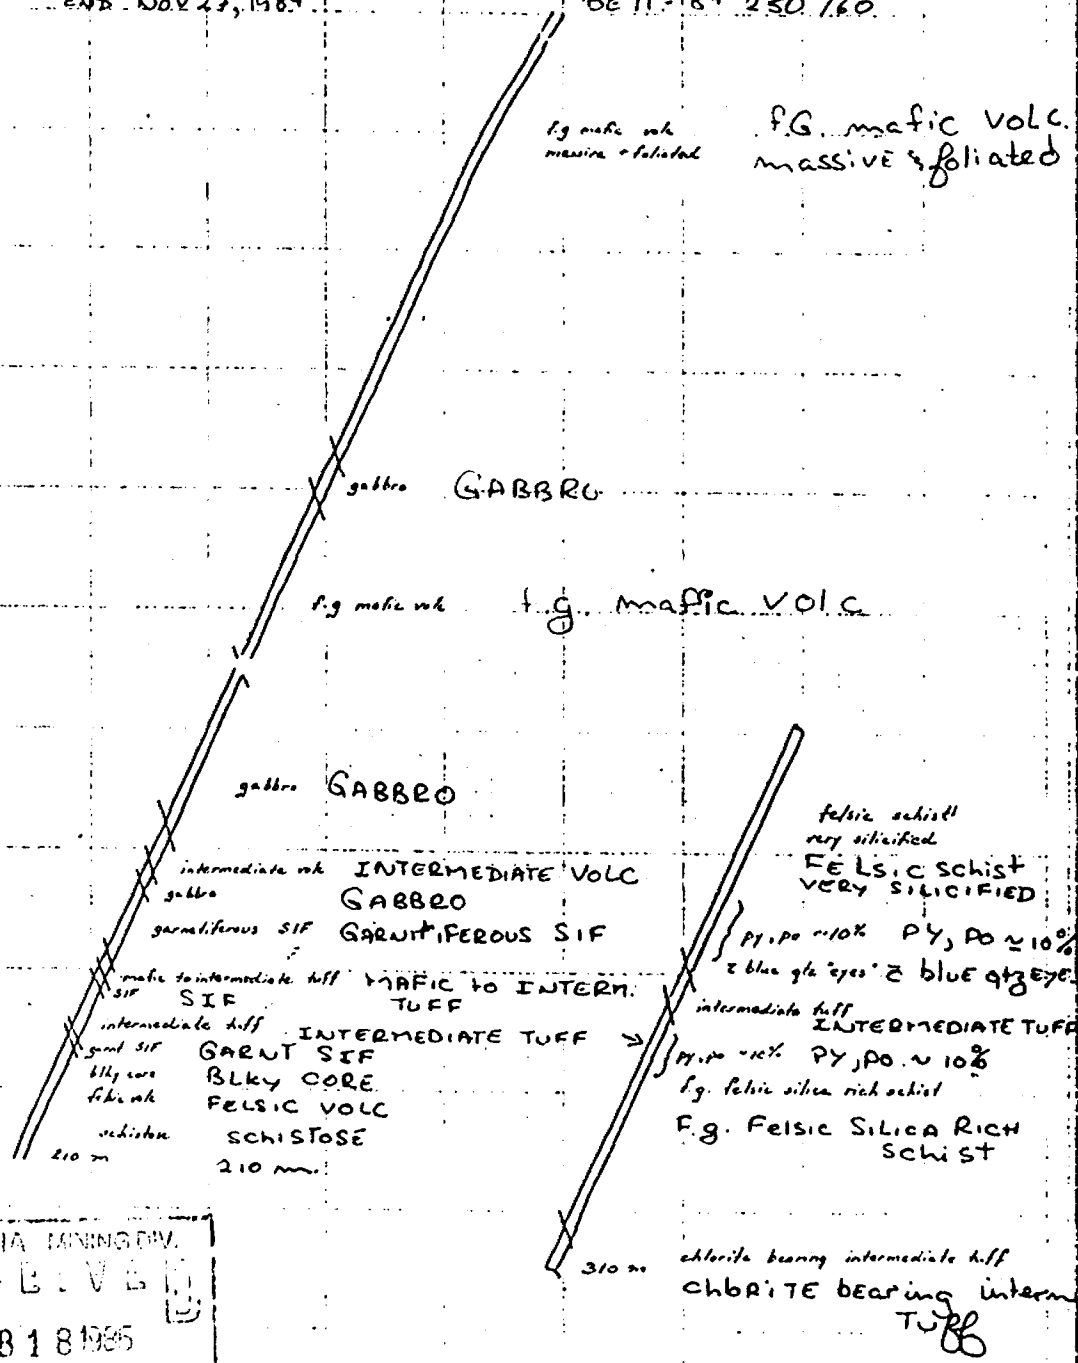 END NOV 27, 198
DE 11-8 250 / 60
f.g mafic volc
massive + foliated
f.G. mafic VOLC.
massivE & foliated
gabbro GABBRO
f.g mafic volc f.g. maffic VOLC
gabbro GABBRO
intermediate volc INTERMEDIATE VOLC
gabbro GABBRO
garnetiferous SIF GARNITIFEROUS SIF
mafic to intermediate tuff MAFIC to INTERM.
TUFF
SIF SIF
intermediate tuff INTERMEDIATE TUFF
garnt SIF GARNT SIF
blky core BLKY CORE
felsic volc FELSIC VOLC
schistose SCHISTOSE
210 m 210 m.
felsic schist
very silicified
FELSiC Schist
VERY SILICIFIED
py, po ~10% PY, PO ≃ 10%
c̄ blue qtz "eyes" c̄ blue qtz EYE
intermediate tuff
INTERMEDIATE TUFF
py, po ~10% PY, PO. ~ 10%
f.g. felsic silica rich schist
F.g. Felsic SILICA RICH
Schist
310 m
chlorite bearing intermediate tuff
ChloRiTE bearing interm
Tuff
MINING DIV.
B 18 1985